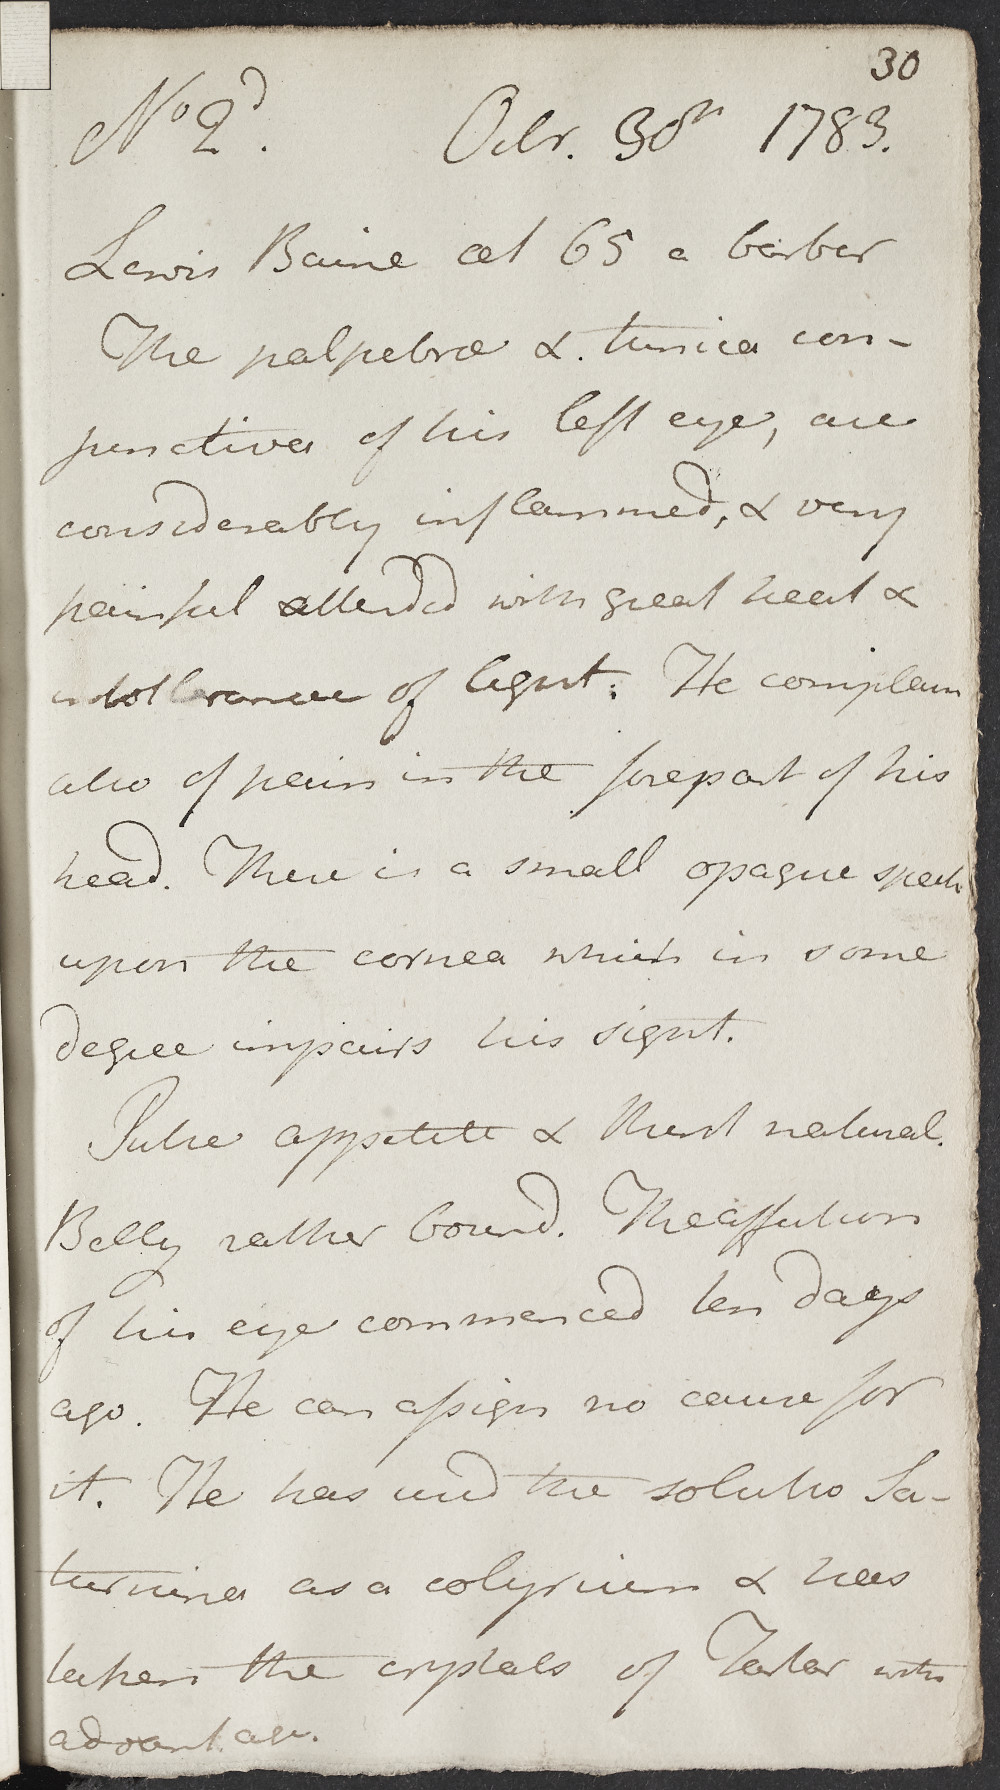 30
No 2d. Octr. 30th 1783.
Lewis Baine æt 65 a barber
The palpebræ &. tunica con-
junctiva of his left eye, are
considerably inflammed, & very
painful attended with great heat &
intollerance of light: He complain
also of pain in the forepart of his
head. There is a small opaque speck
upon the cornea which in some
degree impairs his sight.
Pulse appetite & thirst natural.
Belly rather bound. The affection
of his eye commenced ten days
ago. He can assign no cause for
it. He has used the solutio Sa-
turnina as a colyrium & has
taken the crystals of Tartar with
advantage.